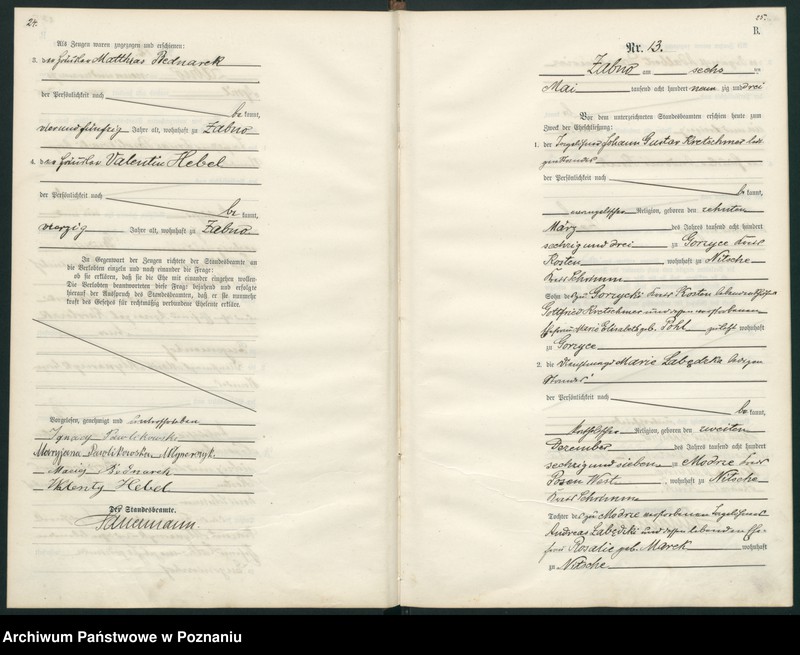 24.
Als Zeugen waren zugezogen und erschienen:
3. der Häusler Matthias Bednarek
der Persönlichkeit nach
be kannt,
vierundfünfzig Jahre alt, wohnhaft zu Żabno
4. der Häusler Valentin Hebel
der Persönlichkeit nach
be kannt,
vierzig Jahre alt, wohnhaft zu Żabno
In Gegenwart der Zeugen richtete der Standesbeamte an
die Verlobten einzeln und nach einander die Frage:
ob sie erklären, daß sie die Ehe mit einander eingehen wollen.
Die Verlobten beantworteten diese Frage bejahend und erfolgte
hierauf der Ausspruch des Standesbeamten, daß er sie nunmehr
kraft des Gesetzes für rechtmäßig verbundene Eheleute erkläre.
Vorgelesen, genehmigt und unterschrieben
Ignacy Pawlikowski
Maryjana Pawlikowska
Maciej Bednarek
Walenty Hebel
Der Standesbeamte.
25.
B.
Nr. 13.
Żabno am sechs ten
Mai tausend acht hundert neun zig und drei
Vor dem unterzeichneten Standesbeamten erschien heute zum
Zweck der Eheschließung:
1. der Tagelöhner Johann Gustav Kretschmer ledi
gen Standes
der Persönlichkeit nach
be kannt,
evangelischer Religion, geboren den zehnten
März des Jahres tausend acht hundert
sechzig und drei zu Gorzyce Kreis
Kosten, wohnhaft zu Nitsche
Kreis Schrimm
Sohn des zu Gorzycki Kreis Kosten
Gottfried Kretschmer und dessen verstorbenen
Ehefrau Marie Elisabeth geb. Pohl zuletzt wohnhaft
zu Gorzyce
2. die Dienstmagd Marie Labędzka ledigen
Standes
der Persönlichkeit nach
be kannt,
katholischer Religion, geboren den zweiten
Dezember des Jahres tausend acht hundert
sechzig und sieben zu Modrze Kreis
Posen West, wohnhaft zu Nitsche
Kreis Schrimm
Tochter des zu Modrze verstorbenen Tagelöhners
Andreas Łabędzki und dessen lebenden Ehe
frau Rosalie geb. Marek wohnhaft
zu Nitsche
Archiwum Państwowe w Poznaniu